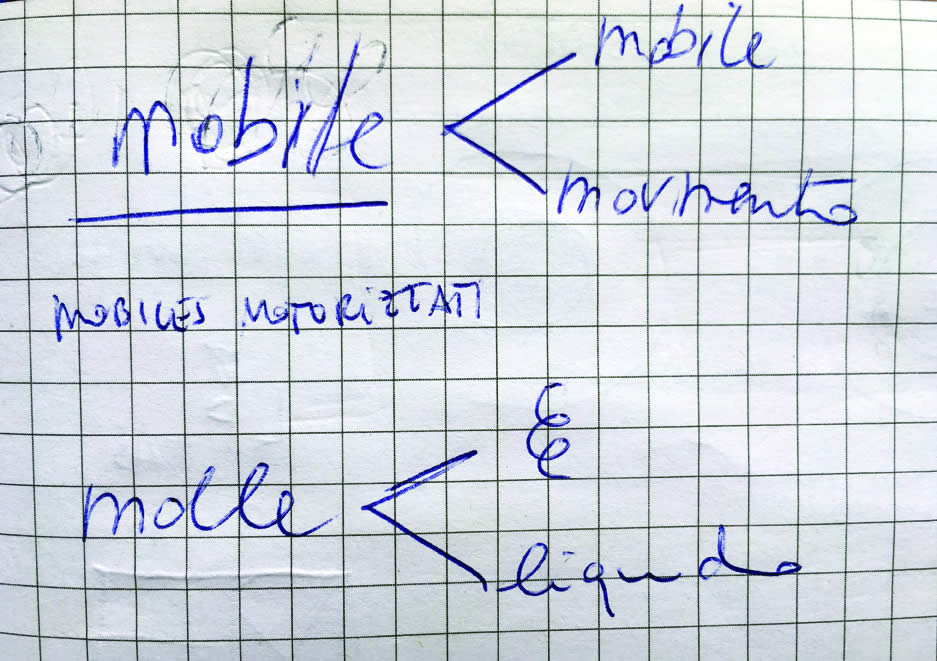 mobile
mobile
movimento
MOBILES MOTORIZZATI
molle
liquido